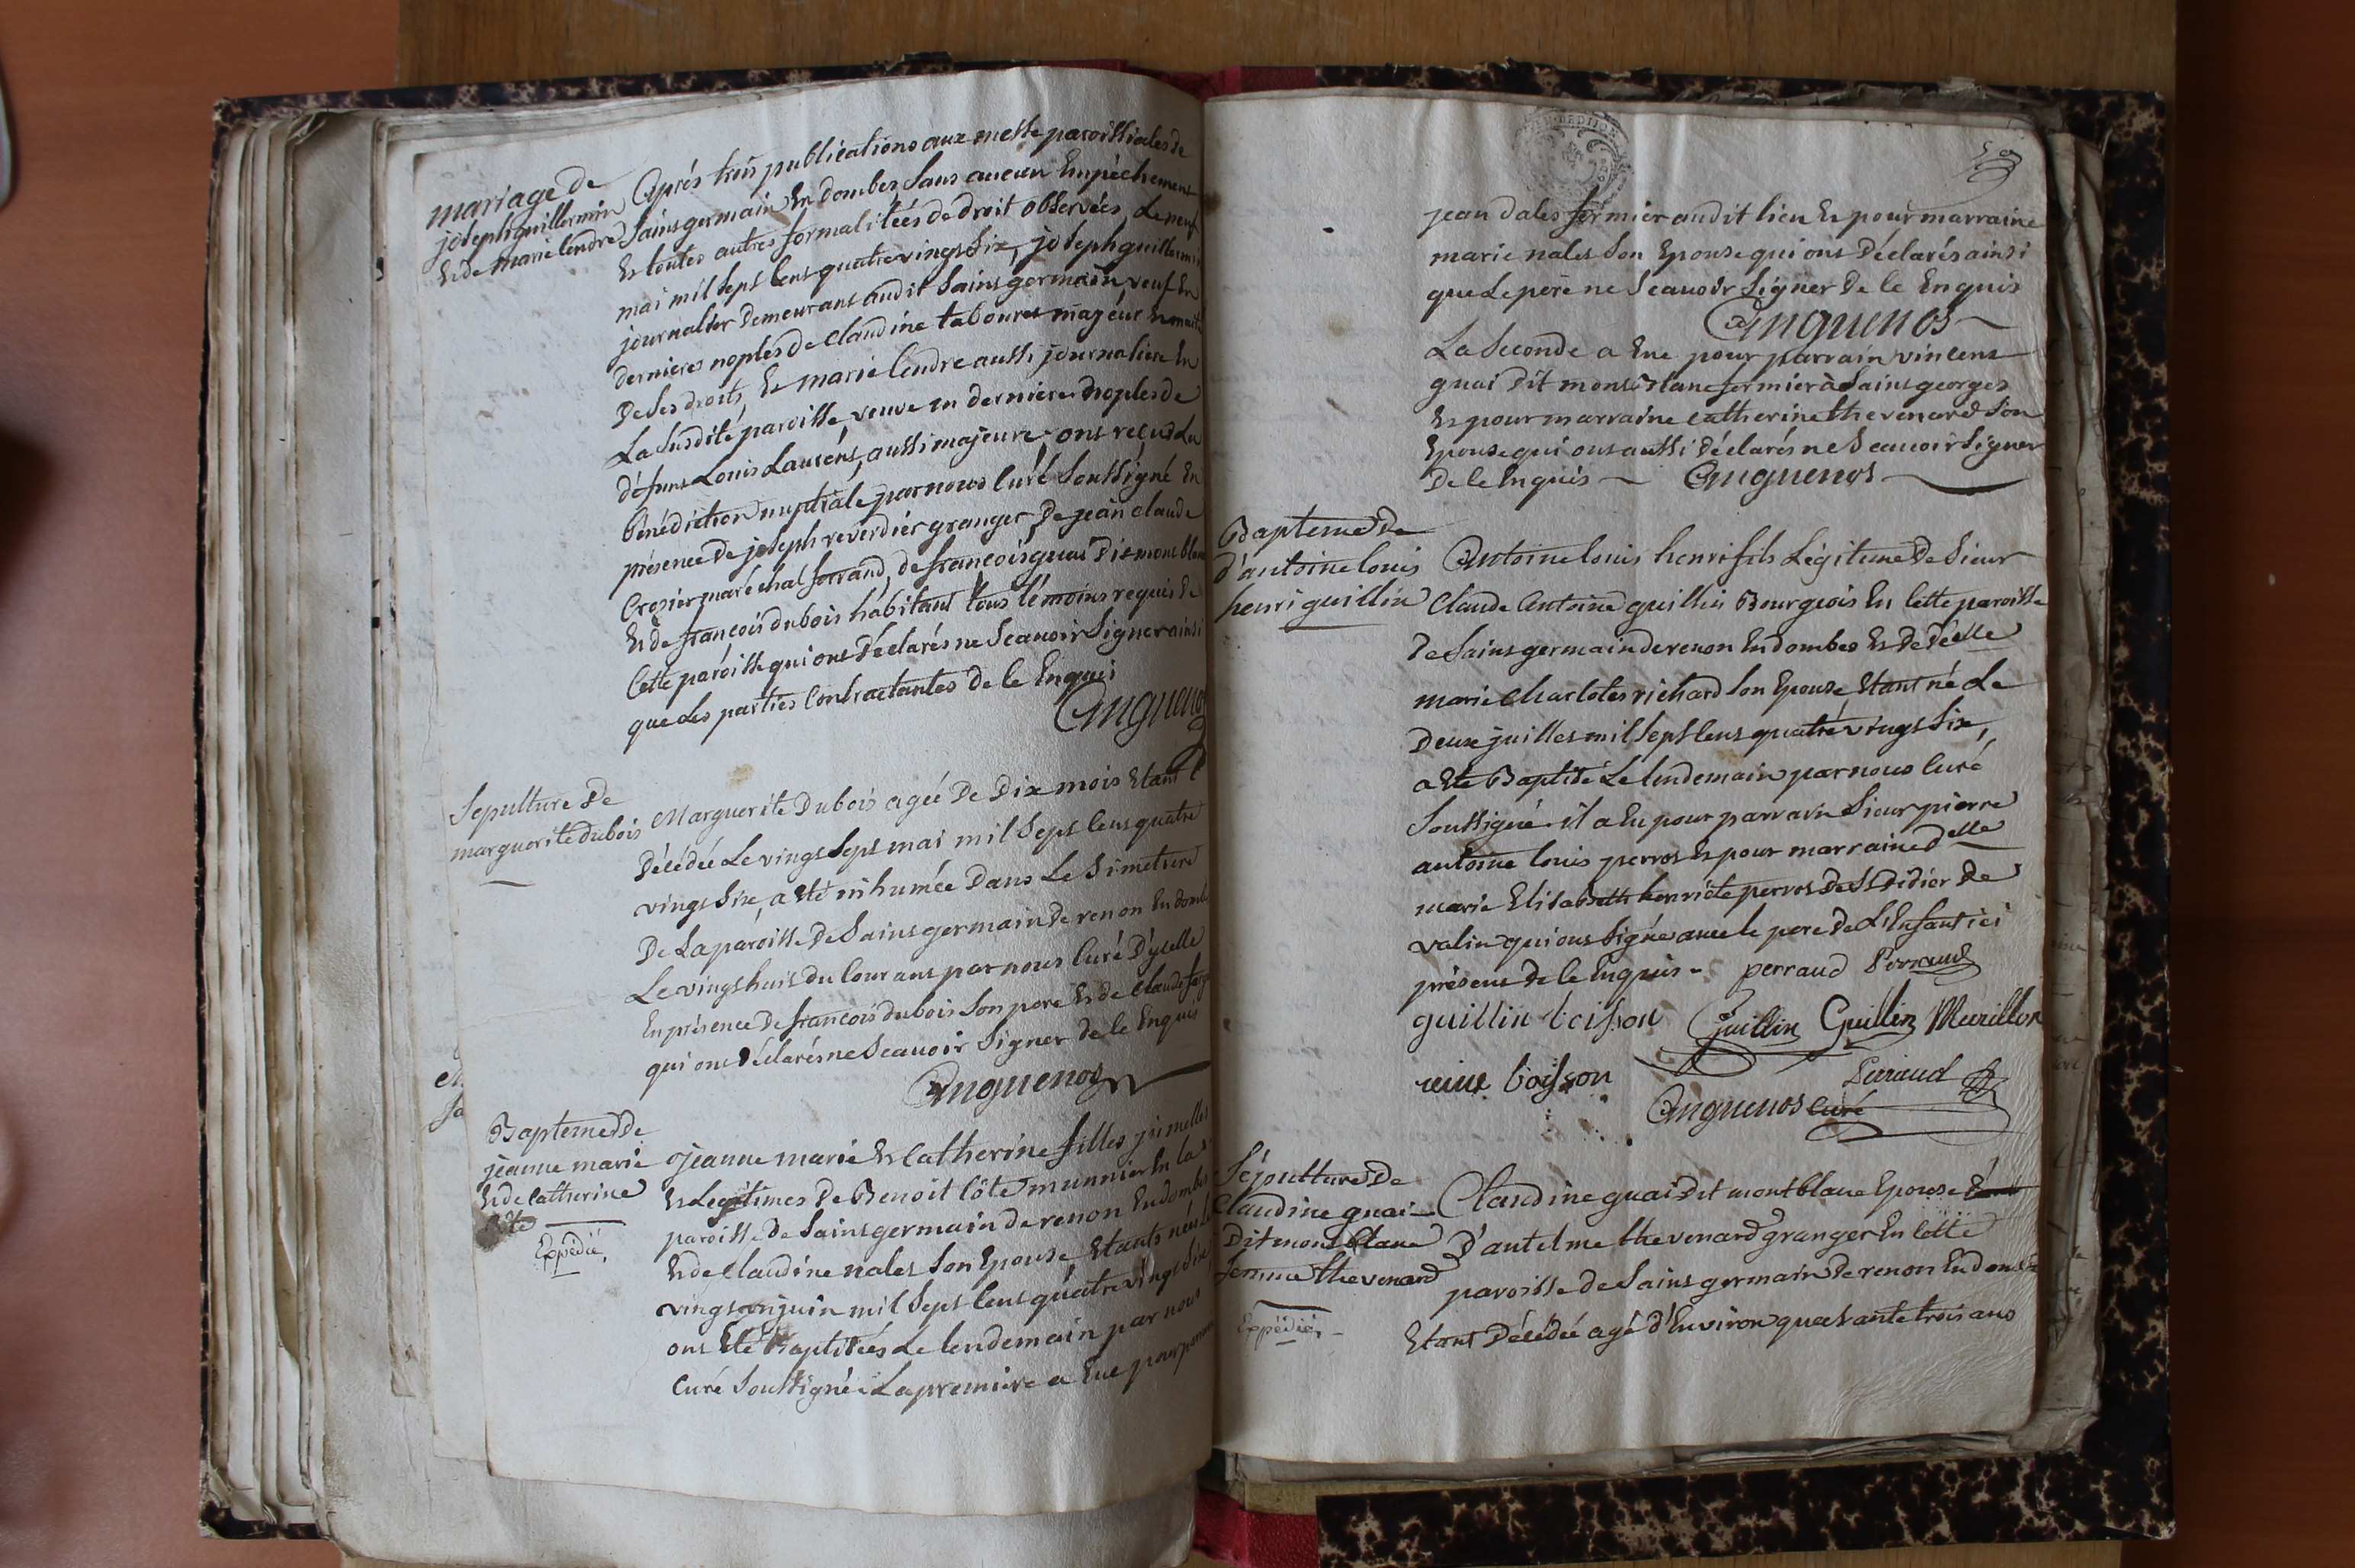 mariage de
joseph guillermin
Et de marie Cendre
Après trois publications aux messe paroissiales de
Saint germain En dombes, Sans aucun Empéchement
Et toutes autres formalitées de droit observées, Le neuf
mai mil Sept Cent quatre vingt Six, joseph guillermin
journalier Demeurant audit Saint germain, veuf En
dernieres noples de Claudine tabouret majeur
De Ses droits, Et marie Cendre aussi journaliere En
La Susdite paroisse, veuve en dernieres noples de
défunt Louis Laurent, aussi majeure, ont reçus La
Bénédiction nuptiale par nous Curé Soussigné En
présence De joseph reverdier granger, De jean Claude
Crozier maréchal ferrand, de francois guai Dit mont blanc
Et de francois dubois habitant tous témoins requis De
Cette paroisse qui ont Déclarés ne Scauoir Signer ainsi
que Les parties Contractantes De Ce Enquis
Anguenot
Sepulture De
marguerite dubois
Marguerite Dubois agée De Dix mois Etant
Décédée Le vingt Sept mai mil Sept Cent quatre
vingt Six, a Eté inhumée Dans Le Simetiere
De La paroisse De Saint germain De renon En dombes
Le vingt huit du Courant par nous Curé D'ycelle
En présence De francois dubois Son pere Et de Claude
qui ont Déclarés ne Scauoir Signer de Ce Enquis
Anguenot
Baptemes De
jeanne marie
Et de Catherine
Côte
Expédié,
jeanne marie Et Catherine filles jumelles
Et Legitimes De Benoit Côte munnier En La
paroisse De Saint germain de renon En dombes
Et de Claudine nalet Son Epouse, Etants nées Le
vingt un juin mil Sept Cent quatre vingt Six
ont Eté Baptisées Le Lendemain par nous
Curé Soussigné: La premiere a Eue pour parrain
jean dalet fermier audit lieu Et pour marraine
marie nalet Son Epouse qui ont Déclarés ainsi
que Le pere ne Scauoir Signer De Ce Enquis
Anguenot
La Seconde a Eue pour parrain vincent
guai Dit mont blanc fermier à Saint georges
Et pour marraine Catherine thevenard Son
Epouse qui ont aussi Déclarés ne Scauoir Signer
De Ce Enquis Anguenot
Bapteme De
d'antoine louis
henri guillin
Antoine louis henri fils Légitime De Sieur
Claude Antoine guillin Bourgeois En Cette paroisse
De Saint germain de renon En dombes Et De Delle
marie Charlotes richard Son Epouse Etant né Le
Deux juillet mil Sept Cent quatre vingt Six,
a Eté Baptisé Le Lendemain par nous Curé
Soussigné. il a Eu pour parrain Sieur pierre
antoine louis perrot Et pour marraine Delle
marie Elisabeth henriéte perrot De St Didier De
valin qui ont Signé avec le pere De L'Enfant ici
présent De Ce Enquis - perraud Perraud
guillin boisson Guillin Guillin Murillon
reine boisson Peraud
Anguenot Curé
Sépulture De
Claudine guai
Dit mont blanc
femme thevenard
Expédié,
Claudine guai Dit mont blanc Epouse
D'antelme thevenard granger En Cette
paroisse De Saint germain De renon En dombes
Etant Décédée agé d'Environ quarante trois ans